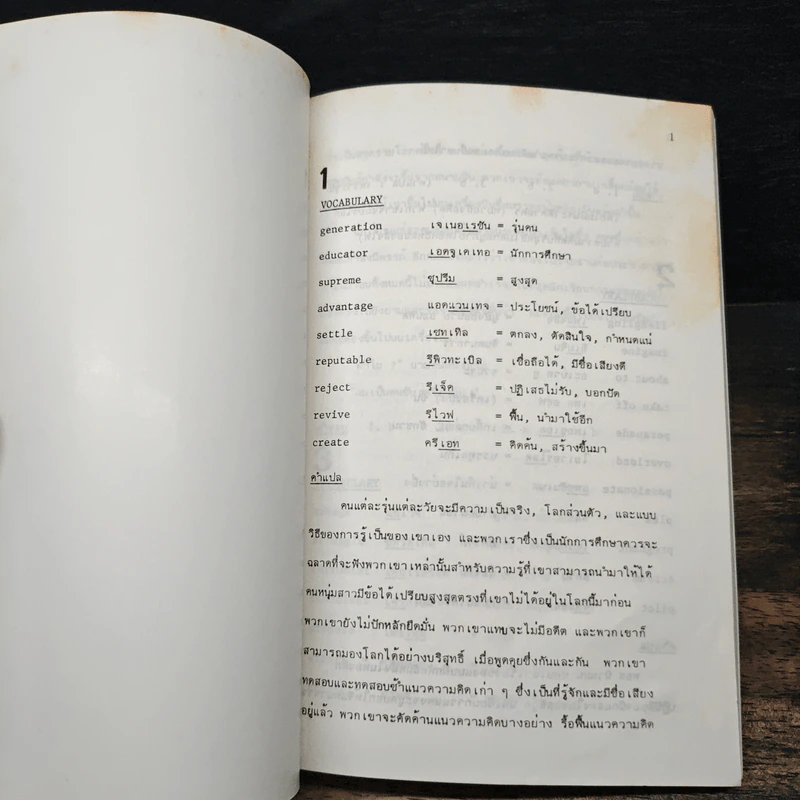 1
1
VOCABULARY
generation เจเนอเรชัน = รุ่นคน
educator เอดจูเคเทอ = นักการศึกษา
supreme ซูปรีม = สูงสุด
advantage แอดแวนเทจ = ประโยชน์, ข้อได้เปรียบ
settle เซทเทิล = ตกลง, ตัดสินใจ, กำหนดแน่
reputable รีพิวทะเบิล = เชื่อถือได้, มีชื่อเสียงดี
reject รีเจ็ค = ปฏิเสธไม่รับ, บอกปัด
revive รีไวฟ = ฟื้น, นำมาใช้อีก
create ครีเอท = คิดค้น, สร้างขึ้นมา
คำแปล
คนแต่ละรุ่นแต่ละวัยจะมีความเป็นจริง, โลกส่วนตัว, และแบบ
วิธีของการรู้เป็นของเขาเอง และพวกเราซึ่งเป็นนักการศึกษาควรจะ
ฉลาดที่จะฟังพวกเขาเหล่านั้นสำหรับความรู้ที่เขาสามารถนำมาให้ได้
คนหนุ่มสาวมีข้อได้เปรียบสูงสุดตรงที่เขาไม่ได้อยู่ในโลกนี้มาก่อน
พวกเขายังไม่ปักหลักยึดมั่น พวกเขาแทบจะไม่มีอดีต และพวกเขาก็
สามารถมองโลกได้อย่างบริสุทธิ์ เมื่อพูดคุยซึ่งกันและกัน พวกเขา
ทดสอบและทดสอบซ้ำแนวความคิดเก่า ๆ ซึ่งเป็นที่รู้จักและมีชื่อเสียง
อยู่แล้ว พวกเขาจะคัดค้านแนวความคิดบางอย่าง รื้อฟื้นแนวความคิด